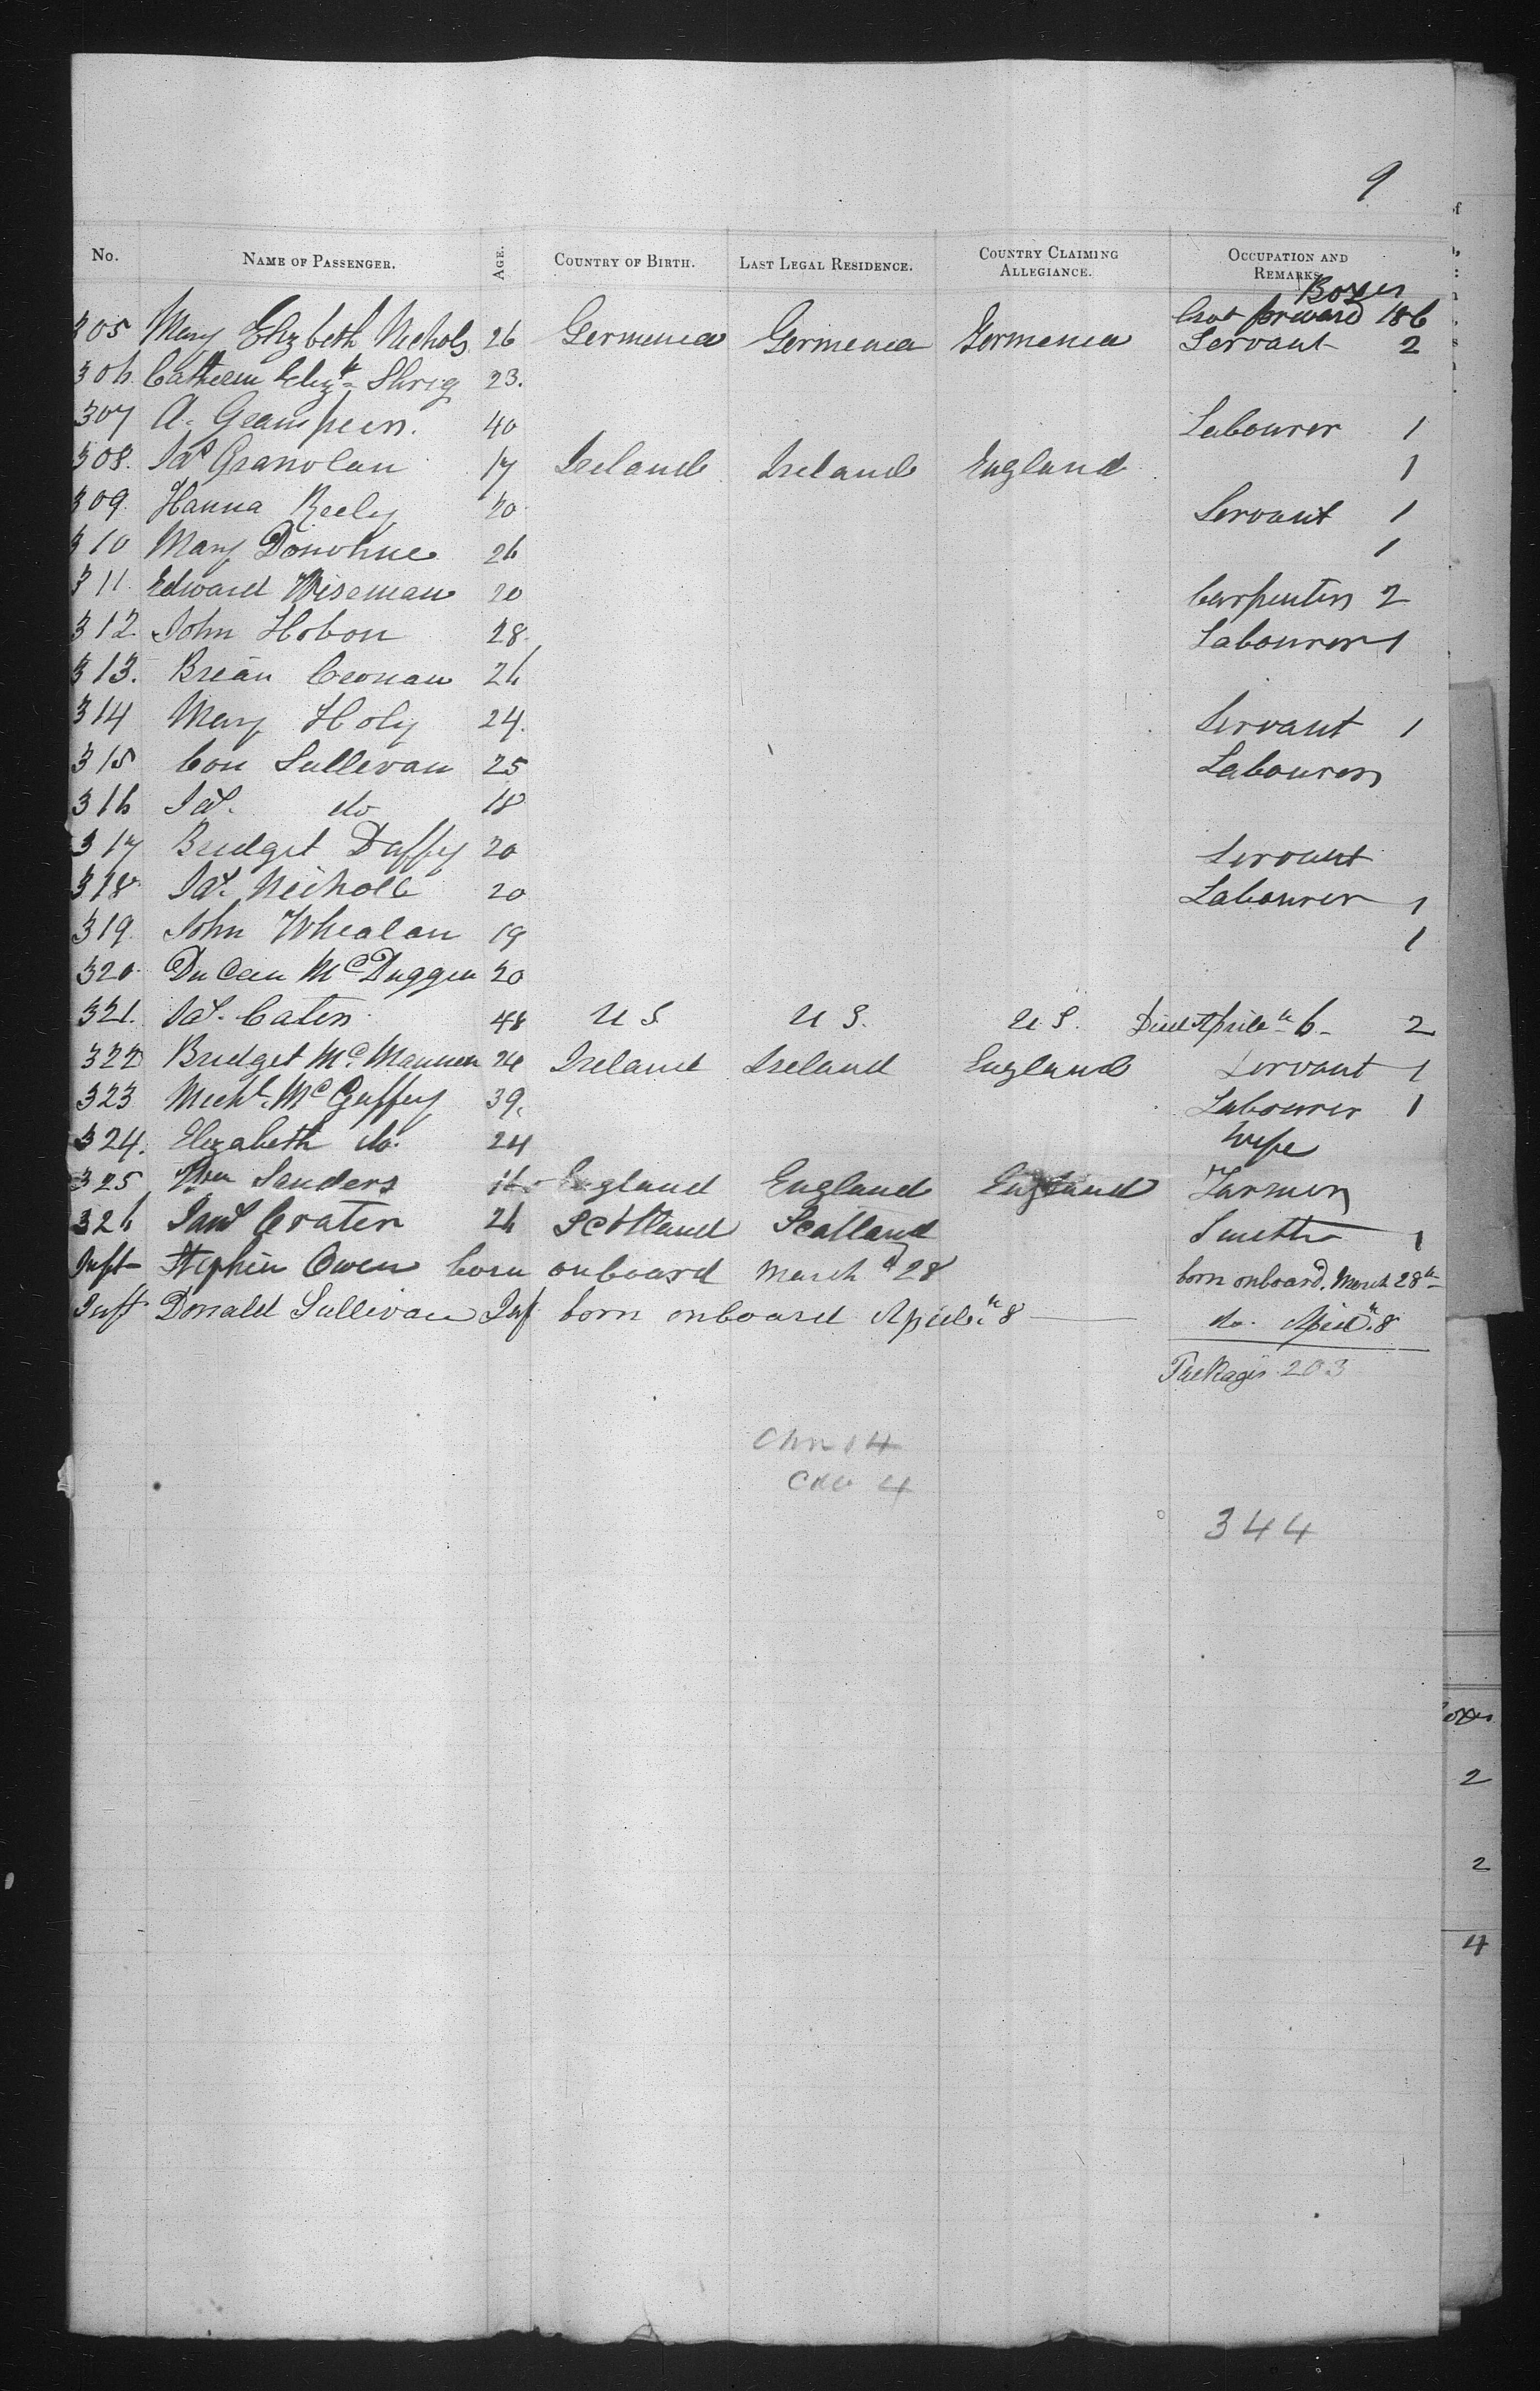 9
No. NAME OF PASSENGER. AGE. COUNTRY OF BIRTH. LAST LEGAL RESIDENCE. COUNTRY CLAIMING ALLEGIANCE. OCCUPATION AND REMARKS.
Boxes
forward 186
305 Mary Elizbeth Nichols 26 Germenea Germenea Germenea Servant 2
306 Elizth 23.
307 A. 40 Labourer 1
308. Jas Granolan 17 Ireland Ireland England 1
309. Hanna Reely 20 Servant 1
310 Mary Donohue 26 1
311 Edward Wiseman 20 Carpenter 2
312. John Hobon 28 Labourer 1
313. Brean Cronan 26
314 Mary Holy 24. Servant 1
315 Con Sullevan 25 Labourer
316 Jas. do 18
317 Bridget Duffy 20 Servant
318 Jas. Neicholl 20 Labourer 1
319. John Whealan 19 1
320. Duncan McDuggen 20
321. Jas. Caten 48 U S U S. U S. Died Aprile 6 2
322 Bridget Mc. 24 Ireland Ireland England Servant 1
323 Michl. McGuffey 39. Labourer 1
324. Elizabeth do. 24 Wife
325 Wm Sanders 16 England England England Farmer
326 Crater 26 Scotland Scotland Smith 1
Inft Stephen Owen born onboard March 28 born onboard. March 28th
Inft Donald Sullivan Inf born onboard Aprile 8 do. 8
Packages 203
14
4
344
2
2
4